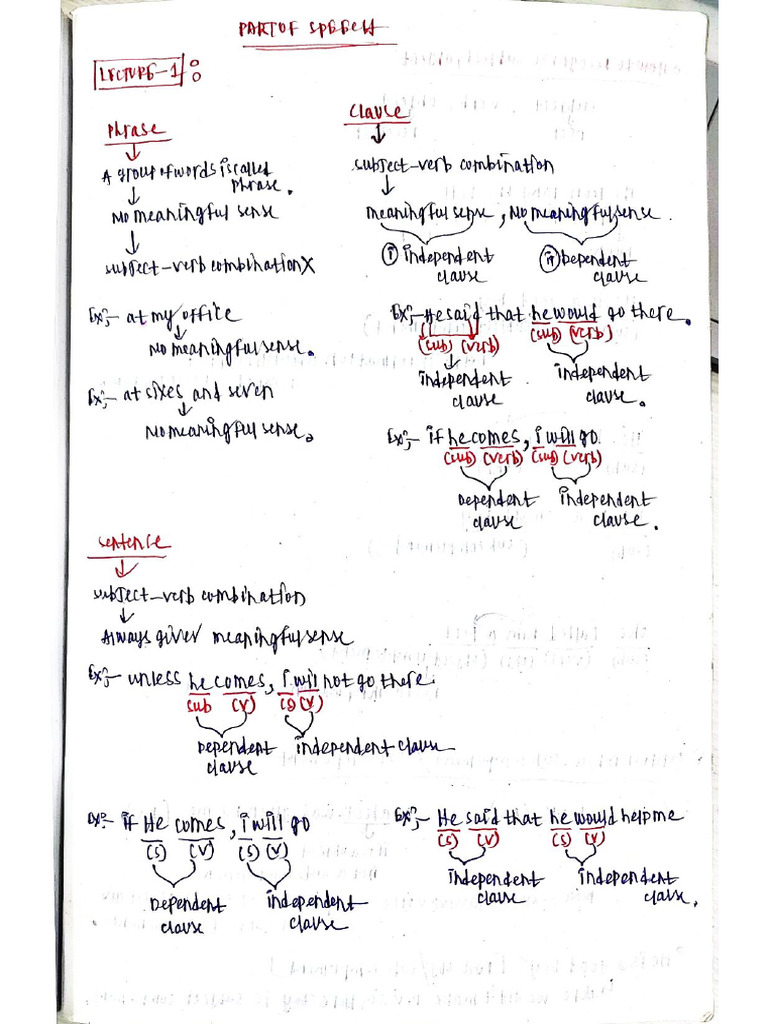 PART OF SPEECH
LECTURE-1:
Phrase
A group of words is called
phrase.
No meaningful sense
subject-verb combination X
Ex:- at my office
No meaningful sense.
Ex:- at sixes and seven
No meaningful sense.
Clause
subject-verb combination
meaningful sense, No meaningful sense.
(i) independent
clause
(ii) Dependent
clause
Ex:- He said that he would go there.
(sub) (verb) (sub) (verb)
independent
clause
independent
clause.
Ex:- if he comes, i will go.
(sub) (verb) (sub) (verb)
Dependent
clause
independent
clause.
sentence
subject-verb combination
Always gives meaningful sense
Ex:- unless he comes, i will not go there.
sub (v) (s) (v)
Dependent
clause
independent clause
Ex:- if He comes, i will go
(s) (v) (s) (v)
Dependent
clause
independent
clause
Ex:- He said that he would help me
(s) (v) (s) (v)
independent
clause
independent
clause.